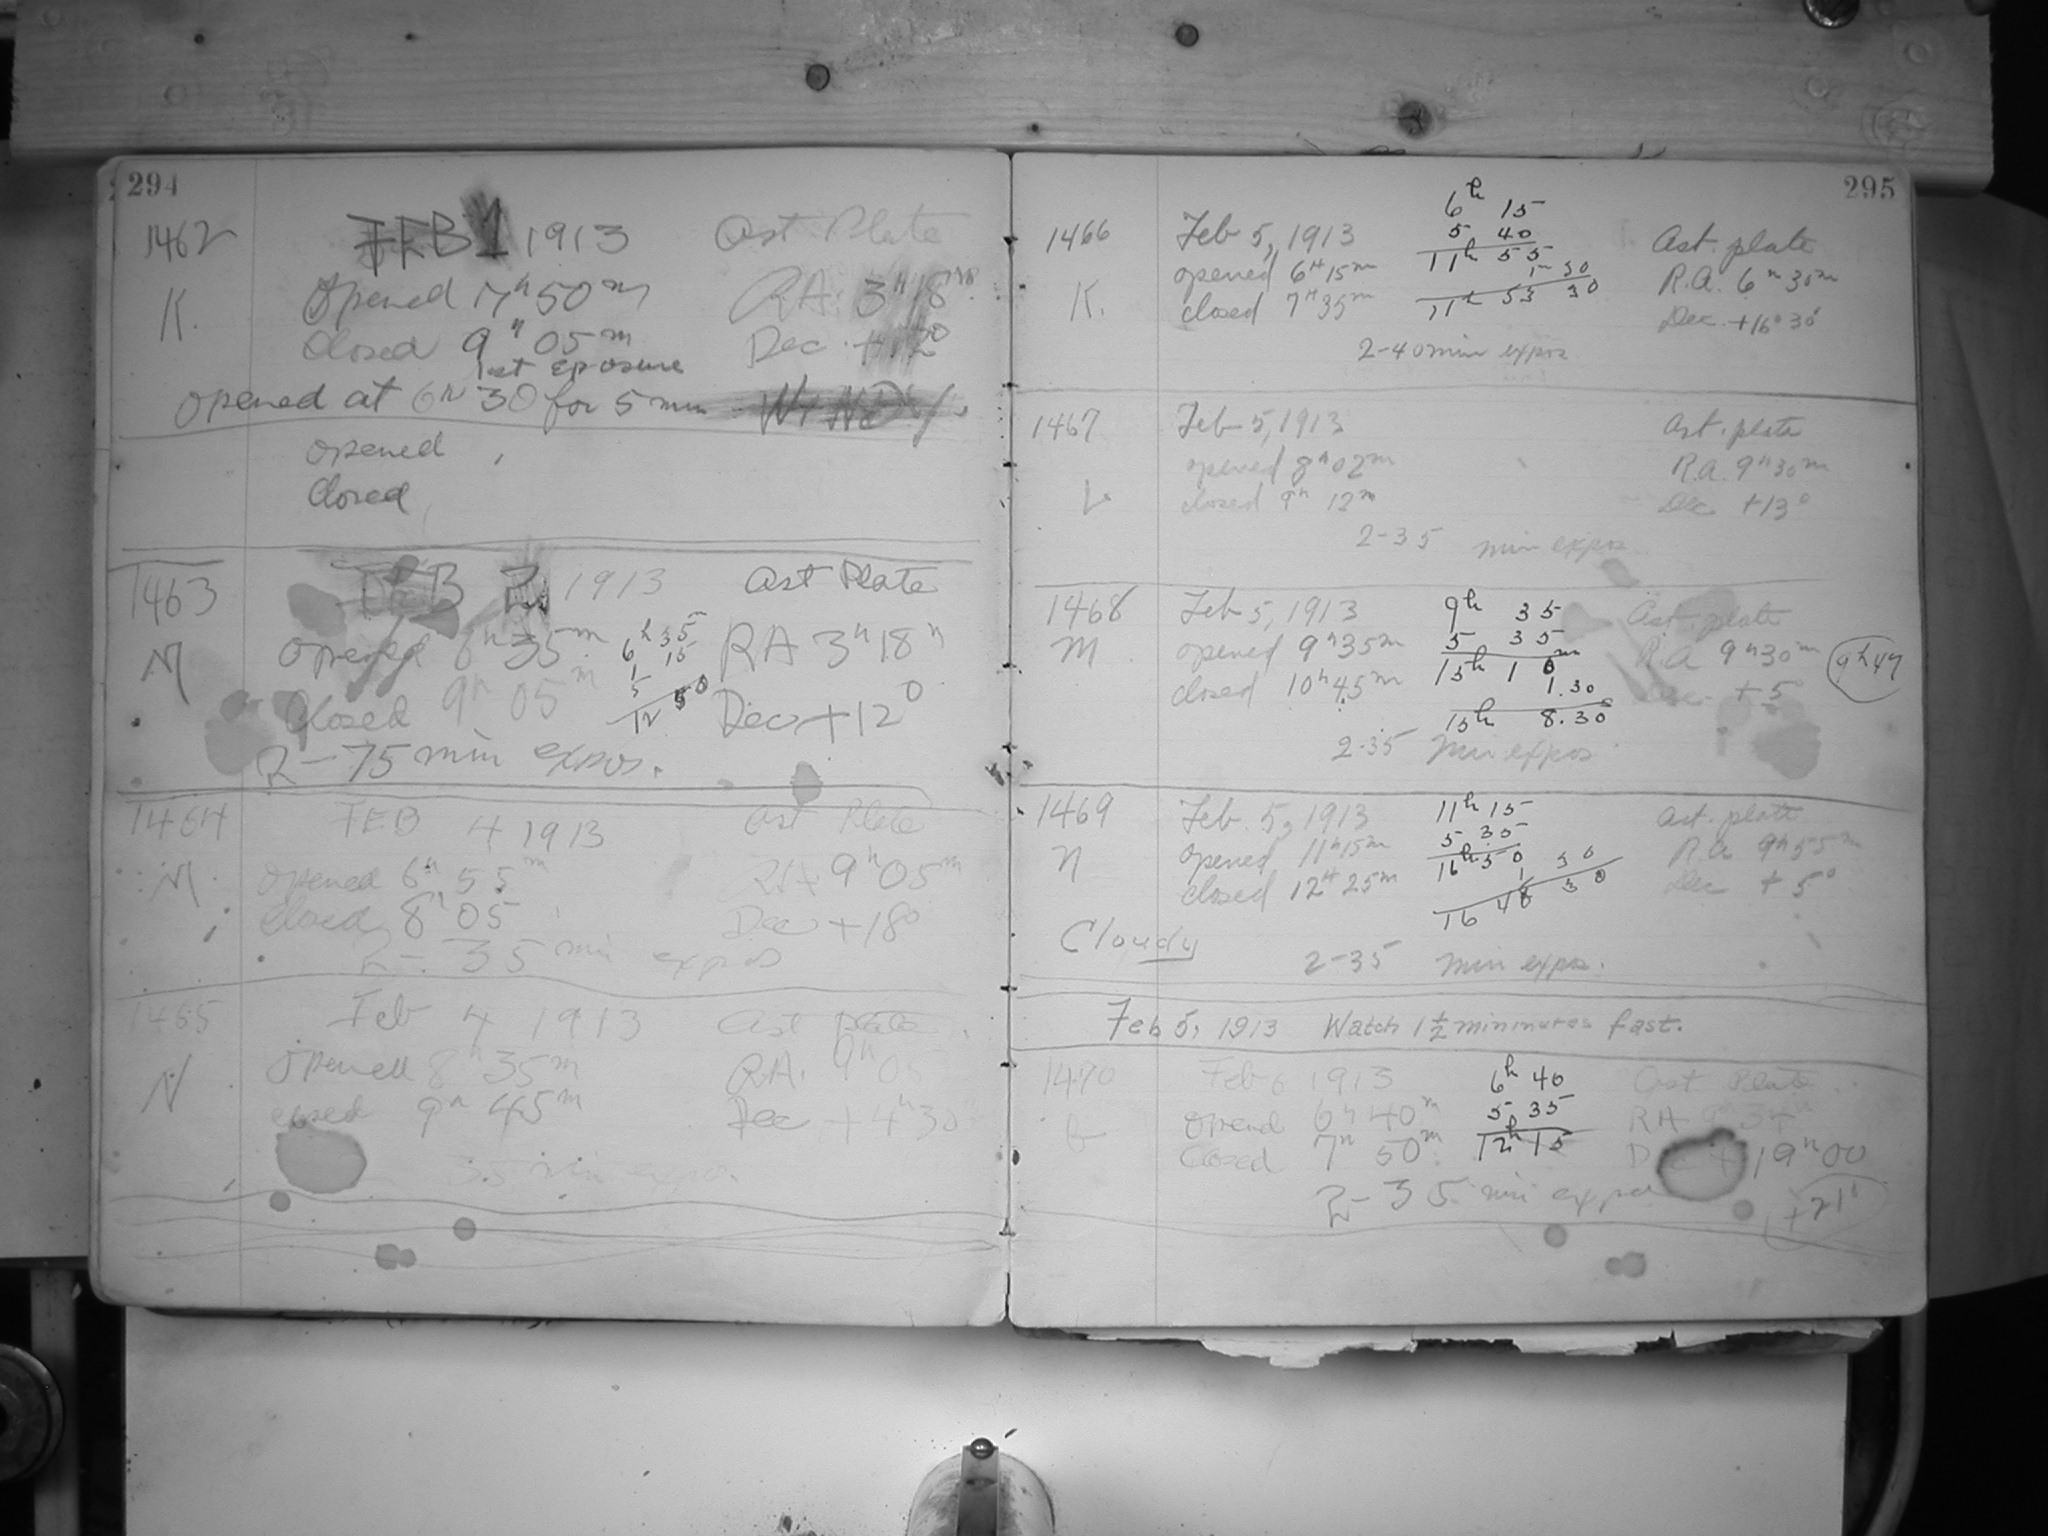 294
1462 FEB 1 1913 Ast Plate
K. Opened 7h 50m RA. 3h 18m
Closed 9h 05m Dec + 12°
1st eposure
opened at 6h 30 for 5 min WINDY
opened
Closed
1463 FEB 2, 1913 Ast Plate
M opened 6h 35m RA 3h 18m
6h 35
1 15
5
12 50
Closed 9h 05m Dec +12°
2-75 min expos.
1464 FEB 4 1913 Ast Plate
M opened 6h 55m RA 9h 05m
Closed 8h 05 Dec +18°
2- 35 min expos
1465 Feb 4 1913 Ast plate
N opened 8h 35m RA. 9h 05
closed 9h 45m Dec +4h 30
35 min expo.
295
1466 Feb 5, 1913 Ast. plate
K. opened 6h 15m R.A. 6h 30m
closed 7h 35m Dec. +16° 30'
6h 15
5 40
11h 55
1 30
11h 53 30
2-40 min expos
1467 Feb 5, 1913 Ast. plate
opened 8h 02m R.A. 9h 30m
L closed 9h 12m Dec +13°
2-35 min expos
1468 Feb 5, 1913 Ast. plate
M opened 9h 35m R.A 9h 30m 9h 47
closed 10h 45m Dec. +5°
9h 35
5 35
15h 10m
1.30
15h 8.30
2-35 min expos
1469 Feb. 5, 1913 Ast. plate
N opened 11h 15m R.A. 9h 55m
closed 12h 25m Dec +5°
11h 15
5 35
16h 50
1 30
16 48 30
Cloudy 2-35 min expos.
Feb 5, 1913 Watch 1 1/2 mininutes fast.
1470 Feb 6 1913 Ast Plate
opend 6h 40m RA
Closed 7h 50m + 19h 00
6h 40
5 35
12h 15
2-35 min expos
+21'